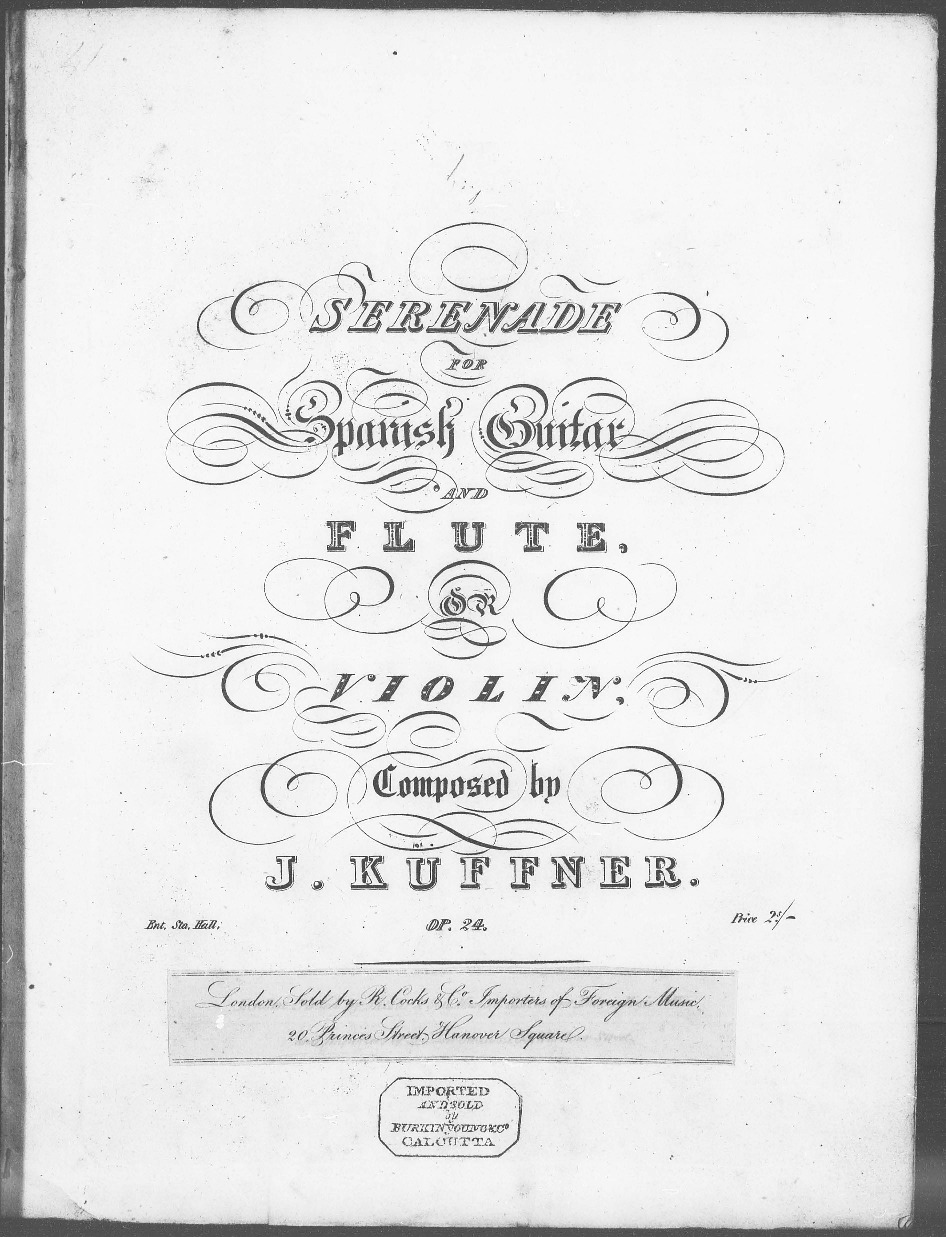 SERENADE
FOR
Spanish Guitar
AND
FLUTE,
OR
VIOLIN,
Composed by
J. KUFFNER.
Ent. Sta. Hall.
OP. 24.
Price 2s/-
London, Sold by R. Cocks & Co. Importers of Foreign Music,
20, Princes Street, Hanover Square.
IMPORTED
AND SOLD
by
BURKINYOUNG & Co
CALCUTTA